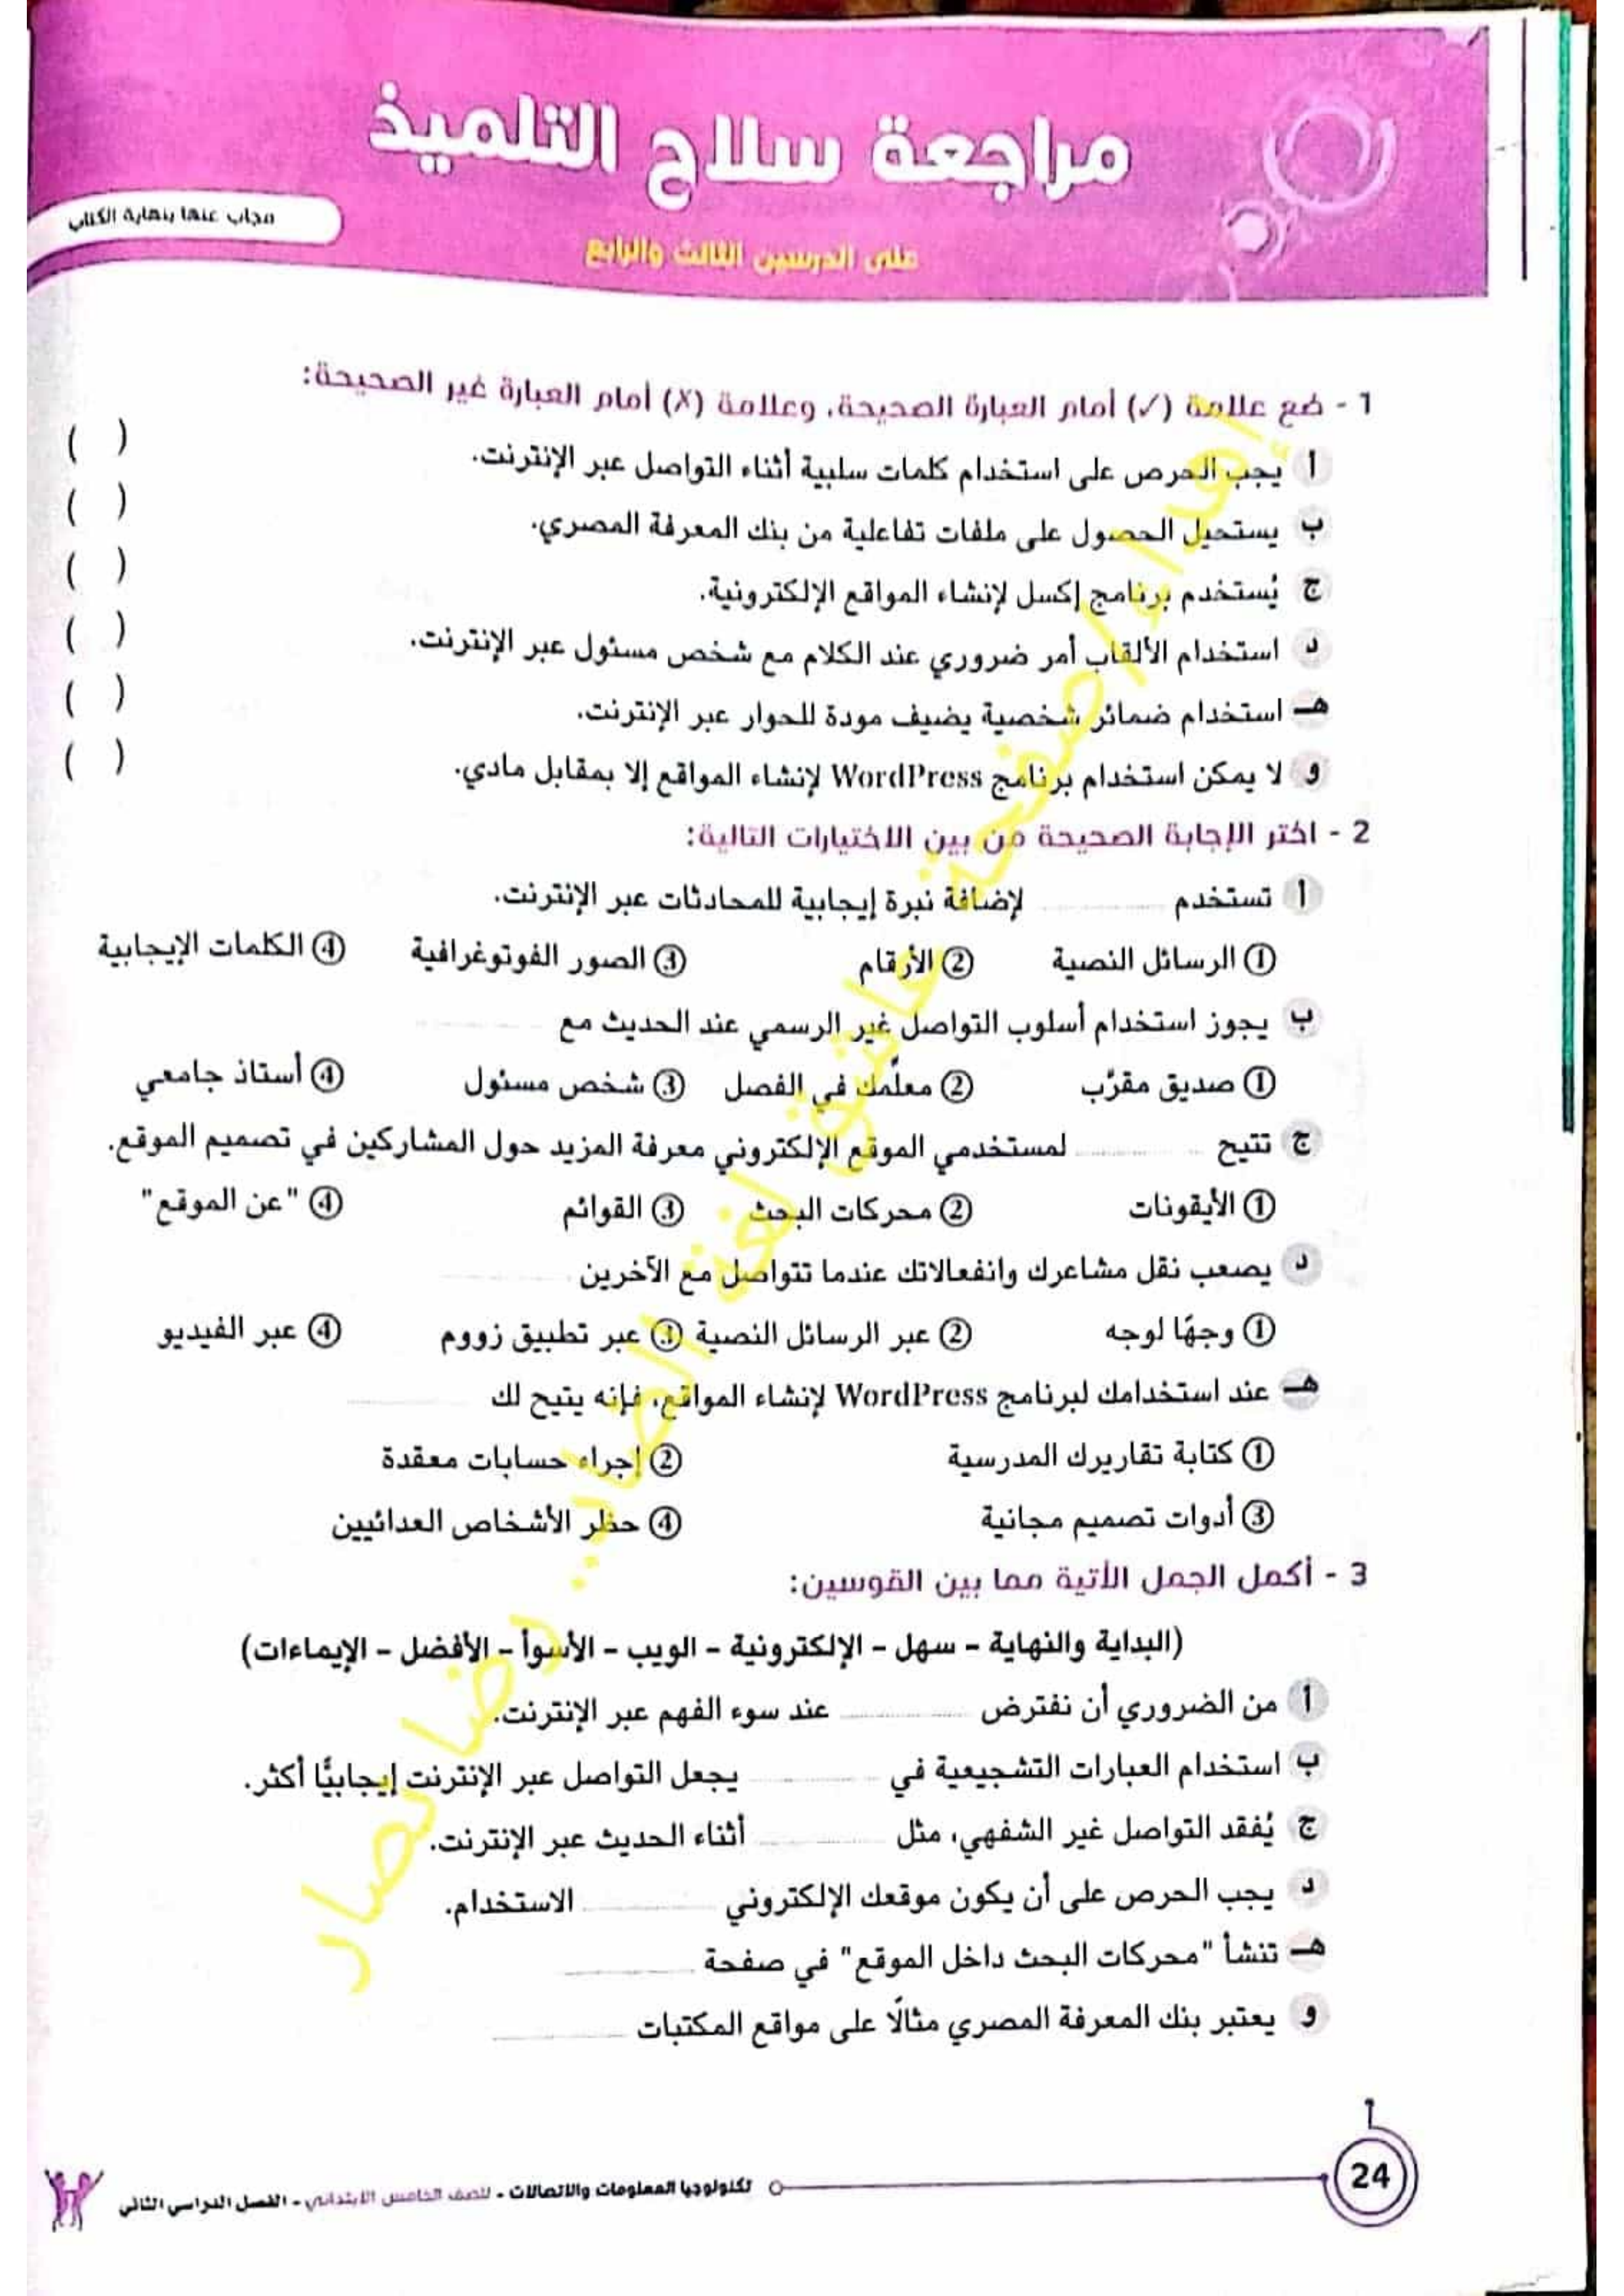 مراجعة سلاح التلميذ
مجاب عنها بنهاية الكتاب
على الدرسين الثالث والرابع
1 - ضع علامة (✓) أمام العبارة الصحيحة، وعلامة (✗) أمام العبارة غير الصحيحة:
أ يجب الحرص على استخدام كلمات سلبية أثناء التواصل عبر الإنترنت. ( )
ب يستحيل الحصول على ملفات تفاعلية من بنك المعرفة المصري. ( )
ج يُستخدم برنامج إكسل لإنشاء المواقع الإلكترونية. ( )
د استخدام الألقاب أمر ضروري عند الكلام مع شخص مسئول عبر الإنترنت. ( )
هـ استخدام ضمائر شخصية يضيف مودة للحوار عبر الإنترنت. ( )
و لا يمكن استخدام برنامج WordPress لإنشاء المواقع إلا بمقابل مادي. ( )
2 - اختر الإجابة الصحيحة من بين الاختيارات التالية:
أ تستخدم ............ لإضافة نبرة إيجابية للمحادثات عبر الإنترنت.
① الرسائل النصية ② الأرقام ③ الصور الفوتوغرافية ④ الكلمات الإيجابية
ب يجوز استخدام أسلوب التواصل غير الرسمي عند الحديث مع ............
① صديق مقرَّب ② معلِّمك في الفصل ③ شخص مسئول ④ أستاذ جامعي
ج تتيح ............ لمستخدمي الموقع الإلكتروني معرفة المزيد حول المشاركين في تصميم الموقع.
① الأيقونات ② محركات البحث ③ القوائم ④ "عن الموقع"
د يصعب نقل مشاعرك وانفعالاتك عندما تتواصل مع الآخرين ............
① وجهًا لوجه ② عبر الرسائل النصية ③ عبر تطبيق زووم ④ عبر الفيديو
هـ عند استخدامك لبرنامج WordPress لإنشاء المواقع، فإنه يتيح لك ............
① كتابة تقاريرك المدرسية ② إجراء حسابات معقدة
③ أدوات تصميم مجانية ④ حظر الأشخاص العدائيين
3 - أكمل الجمل الآتية مما بين القوسين:
(البداية والنهاية - سهل - الإلكترونية - الويب - الأسوأ - الأفضل - الإيماءات)
أ من الضروري أن نفترض ............ عند سوء الفهم عبر الإنترنت.
ب استخدام العبارات التشجيعية في ............ يجعل التواصل عبر الإنترنت إيجابيًّا أكثر.
ج يُفقد التواصل غير الشفهي، مثل ............ أثناء الحديث عبر الإنترنت.
د يجب الحرص على أن يكون موقعك الإلكتروني ............ الاستخدام.
هـ تنشأ "محركات البحث داخل الموقع" في صفحة ............
و يعتبر بنك المعرفة المصري مثالًا على مواقع المكتبات ............
إهداء/صفحة عاشق لغة الضاد.. رضا نصار
24
تكنولوجيا المعلومات والاتصالات - للصف الخامس الابتدائي - الفصل الدراسي الثاني